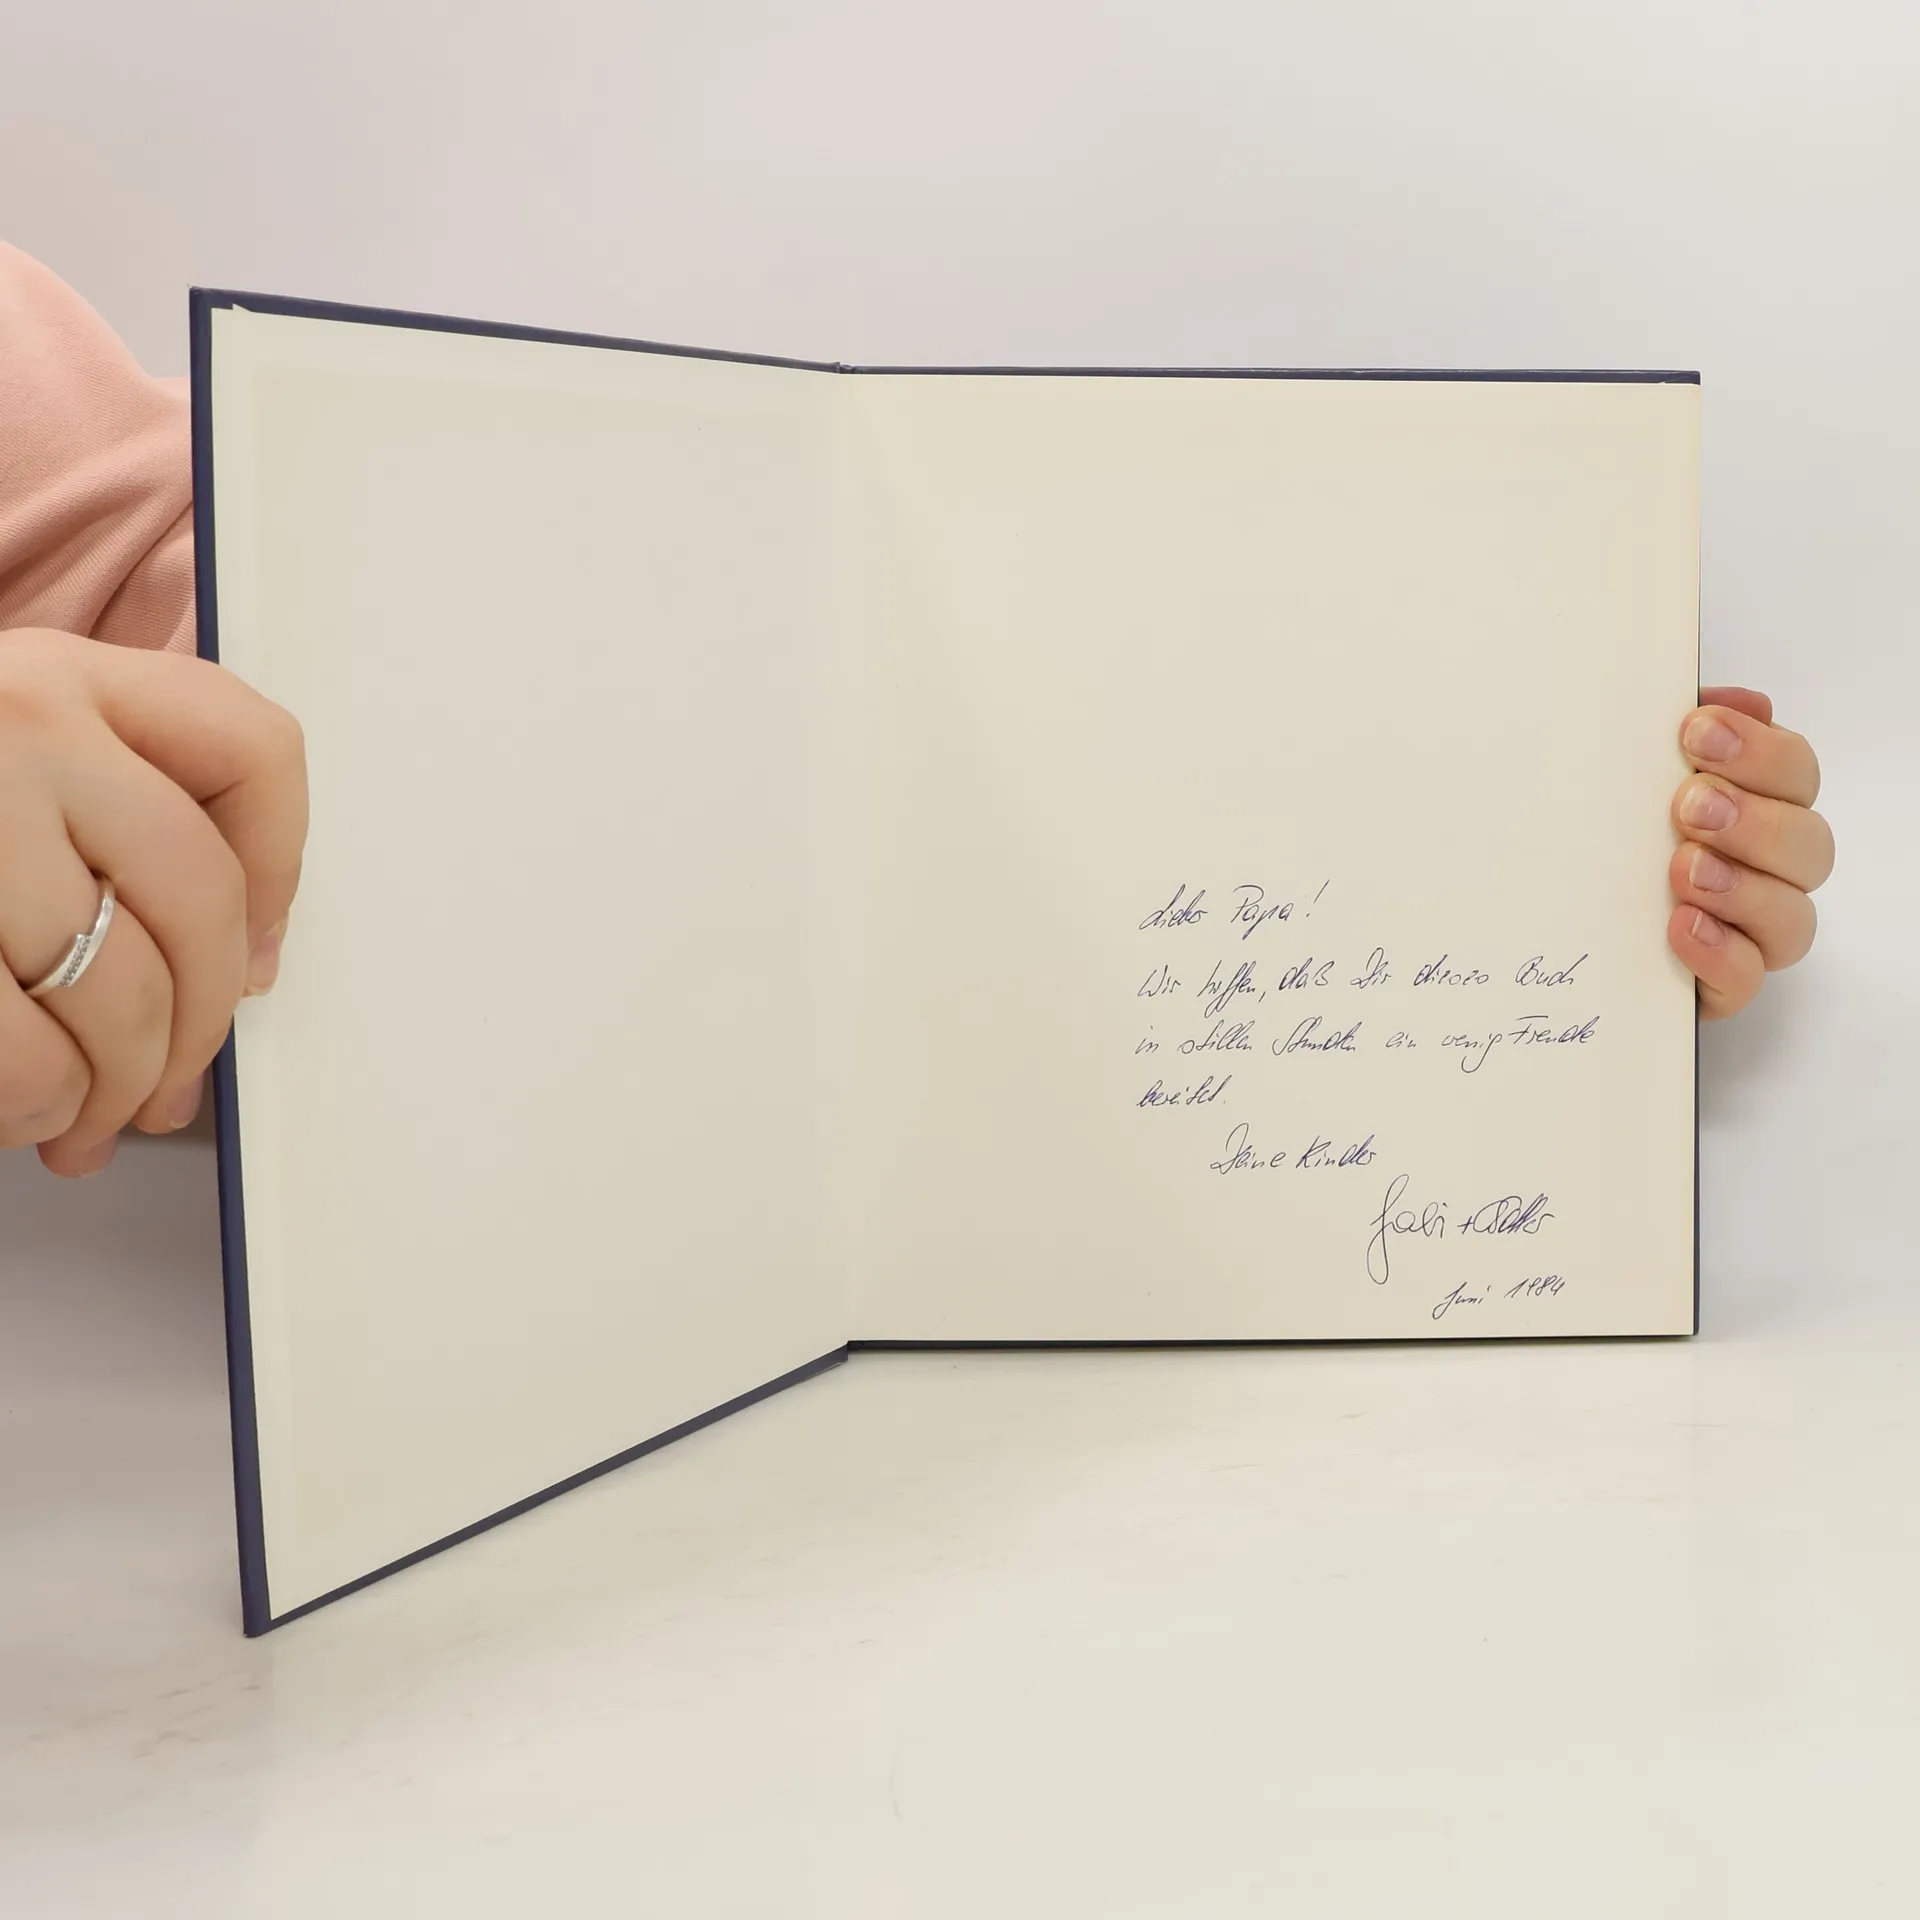 Lieber Papa!
Wir hoffen, daß Dir dieses Buch
in stillen Stunden ein wenig Freude
bereitet.
Deine Kinder
Gabi +
Juni 1984